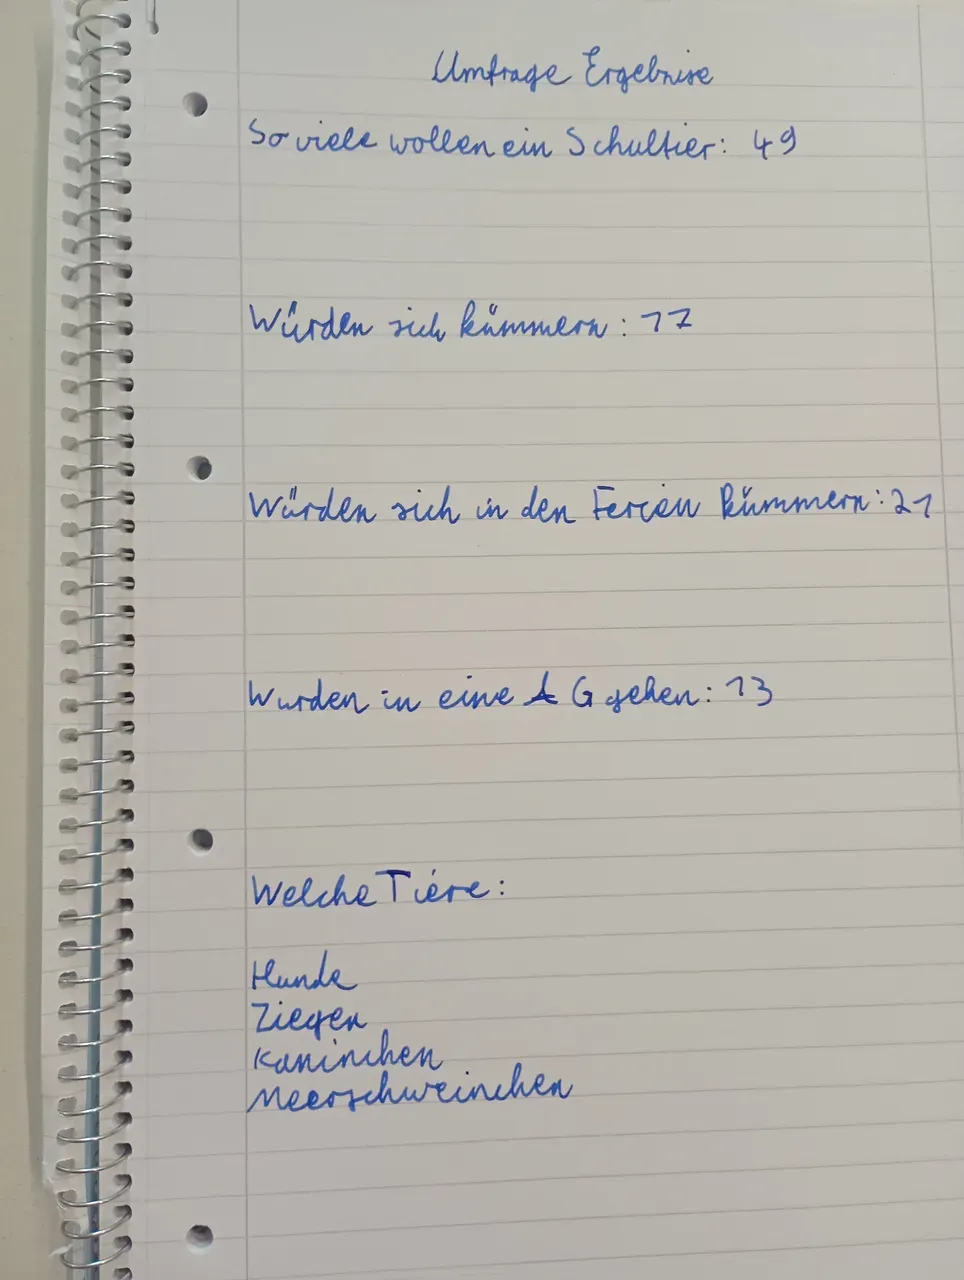 Umfrage Ergebnise
So viele wollen ein Schultier: 49
Würden sich kümmern: 17
Würden sich in den Ferien kümmern: 21
Wurden in eine AG gehen: 13
Welche Tiere:
Hunde
Ziegen
Kaninchen
Meerschweinchen